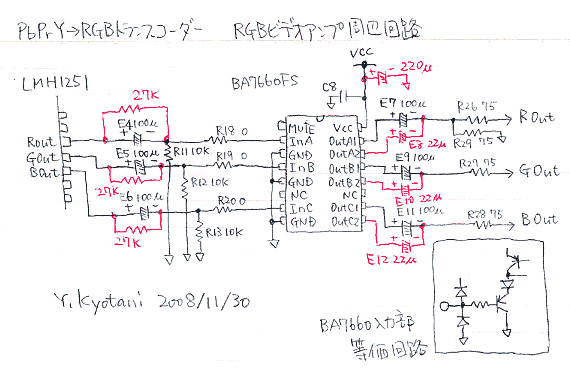 PbPrY→RGBトランスコーダー RGBビデオアンプ周辺回路
VCC
LMH1251
BA7660FS
C8
220μ
27K
E4 100μ
R18 0
Rout
R11 10K
E5 100μ
R19 0
GOut
BOut
27K
R12 10K
E6 100μ
R20 0
27K
R13 10K
MUTE
InA
GND
InB
GND
NC
InC
GND
Vcc
OutA1
OutA2
OutB1
OutB2
NC
OutC1
OutC2
E7 100μ
R26 75
ROut
E8 22μ
R29 75
E9 100μ
R27 75
GOut
E10 22μ
E11 100μ
R28 75
BOut
E12 22μ
Y.Kyotani 2008/11/30
BA7660入力部
等価回路